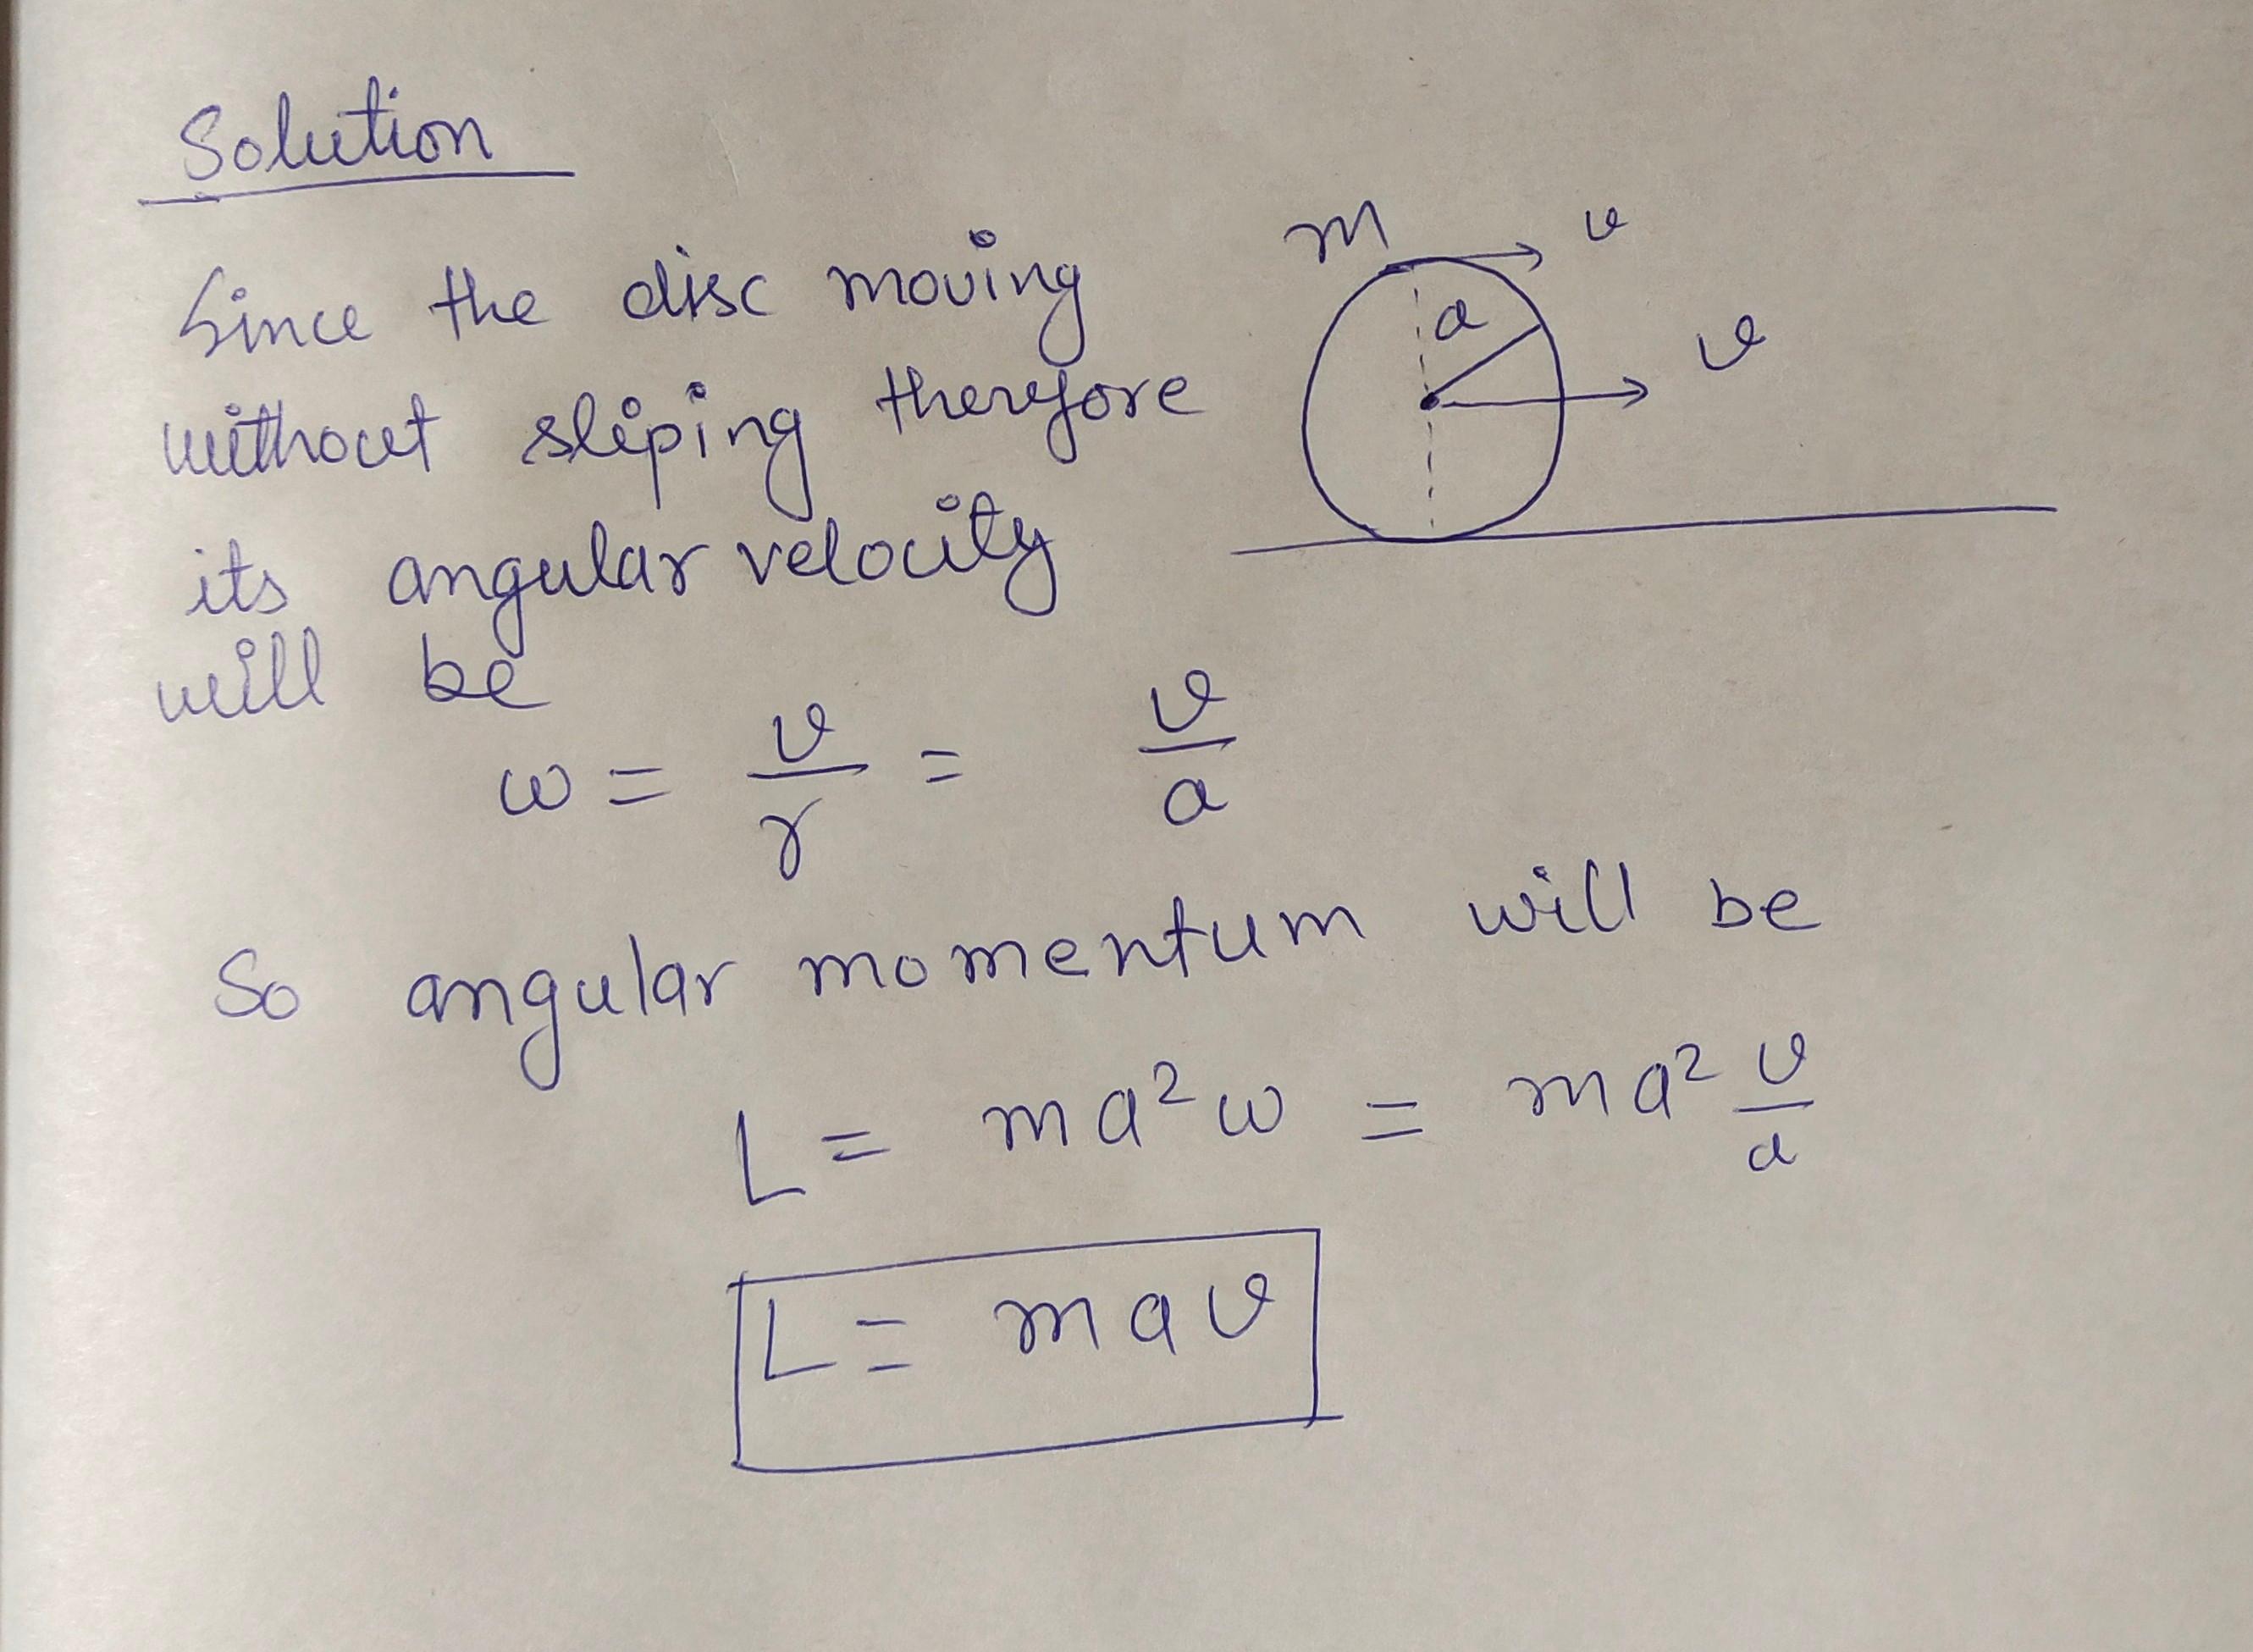 Solution
Since the disc moving
without sliping therefore
its angular velocity
will be
m v
a
v
ω = v/r = v/a
So angular momentum will be
L = ma²ω = ma² v/a
L = mav